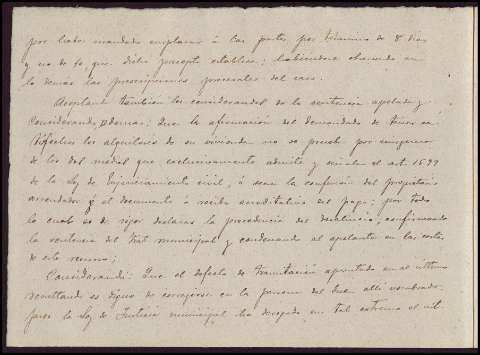 por haber mandado emplazar á las partes por término de 8 dias
y no de 6, que dicho precepto establece; habiendose observado en
lo demás las prescripciones procesales del caso.
Aceptando tambien los considerandos de la sentencia apelada y
Considerando, además: Que la afirmacion del demandado de tener
satisfechos los alquileres de su vivienda no se prueba por ninguno
de los del medios que exclusivamente admite y señala el art. 1579
de la Ley de Enjuiciamiento civil, ó sean la confesión del propietario
arrendador y el documento ó recibo acreditativo del pago; por todo
lo cual es de rigor declarar la procedencia del desahucio, confirmando
la sentencia del Tral municipal y condenando al apelante en las costas
de este recurso;
Considerando: Que el defecto de tramitación apuntado en el último
resultando es digno de corregirse en la persona del Juez allí nombrado
pues la Ley de Justicia municipal ha derogado en tal extremo el art.